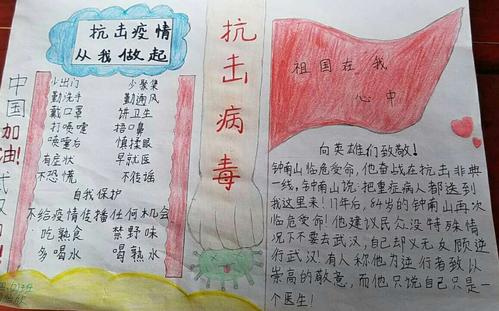 抗击疫情
从我做起
中国
加油!
武汉
少出门 少聚集
勤洗手 勤通风
戴口罩 饼卫生
打喷嚏 捂口鼻
喷嚏后 慎揉眼
有症状 早就医
不恐慌 不传谣
自我保护
不给疫情传播任何机会
吃熟食 禁野味
多喝水 喝热水
抗击病毒
祖国在我
心中
向英雄们致敬!
钟南山临危受命,他奋战在抗击非典
一线,钟南山说:把重症病人都送到
我这里来!17年后,84岁的钟南山再次
临危受命!他建议民众没特殊情
况下不要去武汉,自己却义无反顾逆
行武汉!有人称他为逆行者致以
崇高的敬意,而他只说自己只是一
个医生!